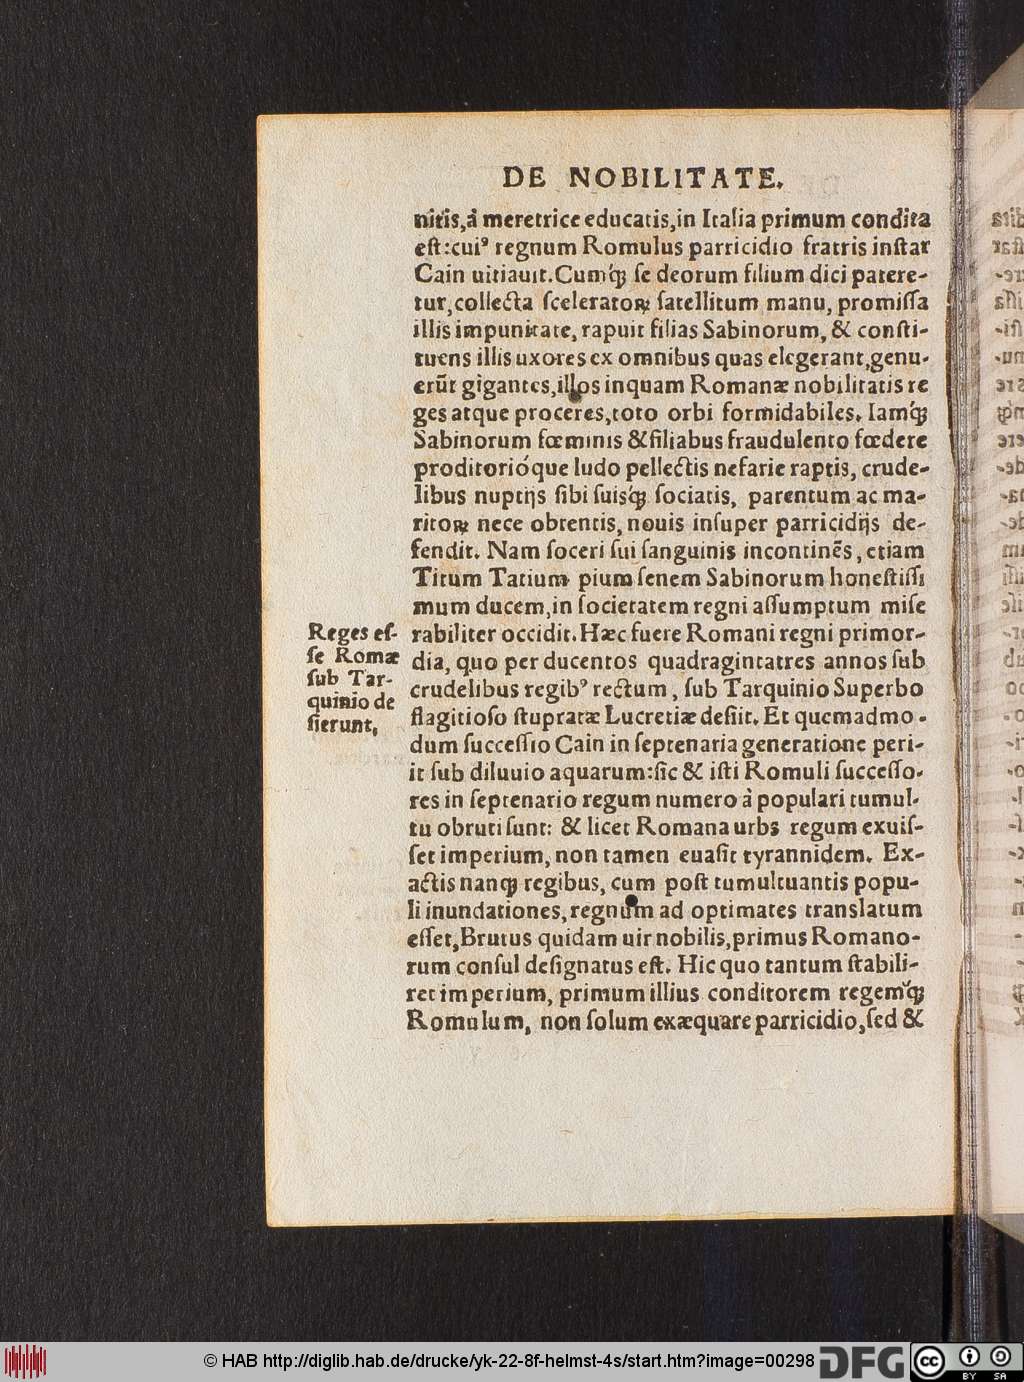 DE NOBILITATE.
nitis,à meretrice educatis,in Italia primum condita
eſt:cuiꝰ regnum Romulus parricidio fratris inſtar
Cain uitiauit.Cumq́ꝫ ſe deorum filium dici patere-
tur,collecta ſceleratoꝝ ſatellitum manu, promiſſa
illis impunitate, rapuit filias Sabinorum, & conſti-
tuens illis uxores ex omnibus quas elegerant,genu-
erũt gigantes,illos inquam Romanæ nobilitatis re
ges atque proceres,toto orbi formidabiles. Iamq́ꝫ
Sabinorum fœminis & filiabus fraudulento fœdere
proditorióque ludo pellectis nefarie raptis, crude-
libus nuptijs ſibi ſuisq́ꝫ ſociatis, parentum ac ma-
ritoꝝ nece obtentis, nouis inſuper parricidijs de-
fendit. Nam ſoceri ſui ſanguinis incontinẽs, etiam
Titum Tatium pium ſenem Sabinorum honeſtiſſi
mum ducem,in ſocietatem regni aſſumptum miſe
rabiliter occidit.Hæc fuere Romani regni primor-
dia, quo per ducentos quadragintatres annos ſub
crudelibus regibꝰ rectum, ſub Tarquinio Superbo
flagitioſo ſtupratæ Lucretiæ deſiit. Et quemadmo-
dum ſucceſſio Cain in ſeptenaria generatione peri-
it ſub diluuio aquarum:ſic & iſti Romuli ſucceſſo-
res in ſeptenario regum numero à populari tumul-
tu obruti ſunt: & licet Romana urbs regum exuiſ-
ſet imperium, non tamen euaſit tyrannidem. Ex-
actis nanqꝫ regibus, cum poſt tumultuantis popu-
li inundationes, regnum ad optimates translatum
eſſet,Brutus quidam uir nobilis,primus Romano-
rum conſul deſignatus eſt. Hic quo tantum ſtabili-
ret imperium, primum illius conditorem regemq́ꝫ
Romulum, non ſolum exæquare parricidio,ſed &
Reges eſ-
ſe Romæ
ſub Tar-
quinio de
ſierunt.
© HAB http://diglib.hab.de/drucke/yk-22-8f-helmst-4s/start.htm?image=00298
DFG
cc
BY SA